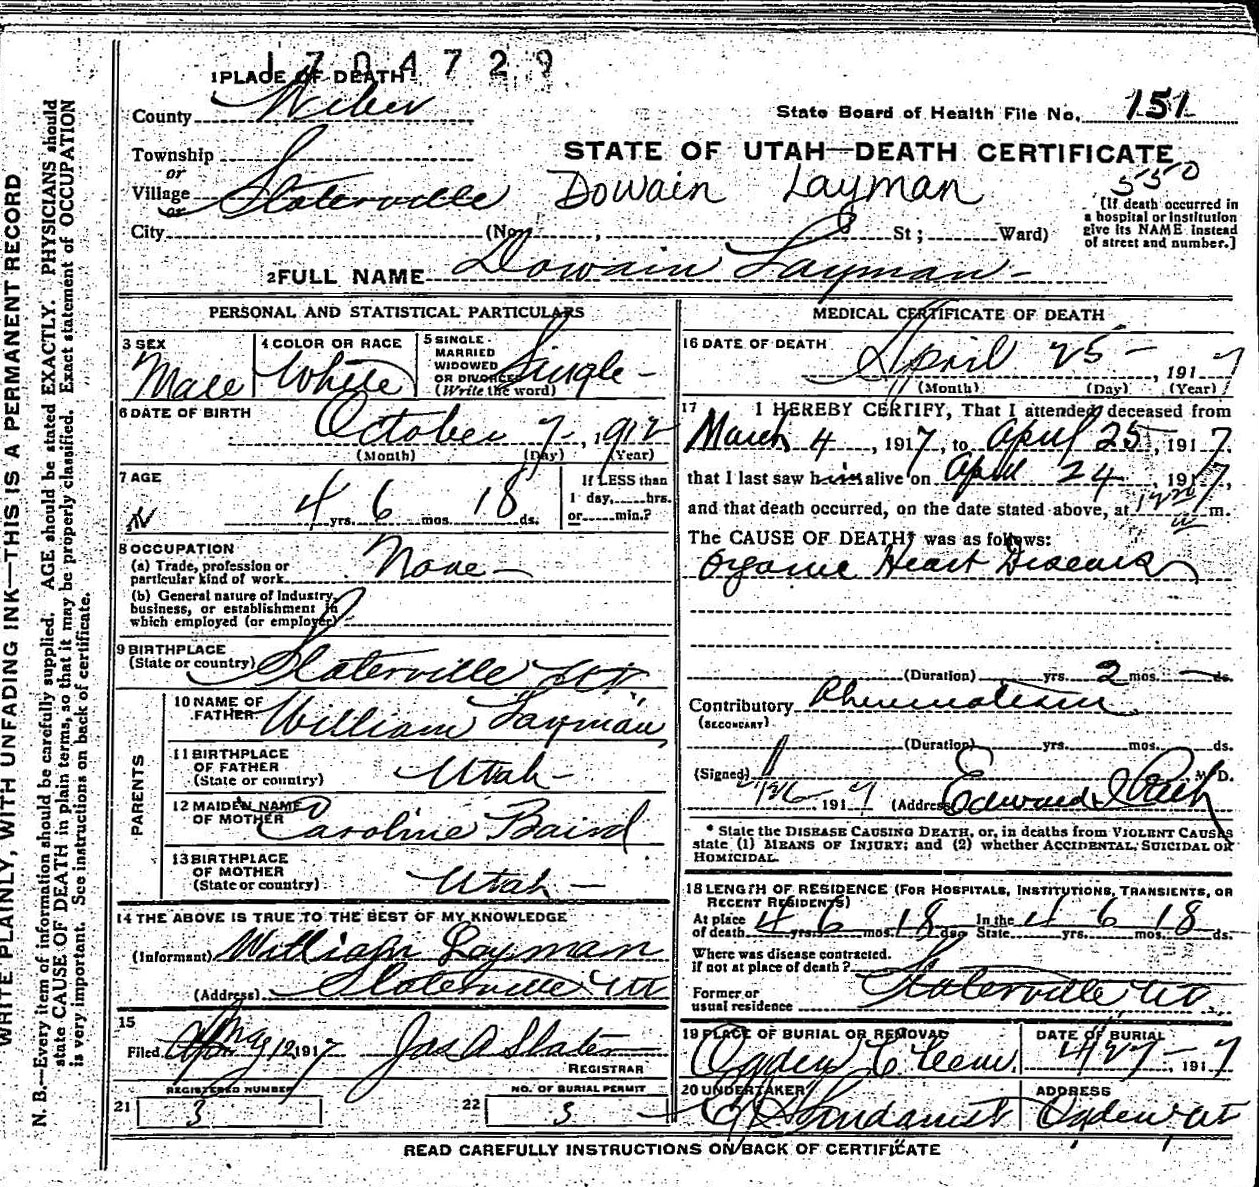 1704729
1 PLACE OF DEATH
County Weber
State Board of Health File No. 151
Township
or
Village Slaterville
or
STATE OF UTAH—DEATH CERTIFICATE
Dowain Layman
550
[If death occurred in a hospital or institution give its NAME instead of street and number.]
City (No. , St; Ward)
2 FULL NAME Dowain Layman
PERSONAL AND STATISTICAL PARTICULARS
3 SEX
Male
4 COLOR OR RACE
White
5 SINGLE
MARRIED
WIDOWED
OR DIVORCED
(Write the word)
Single
6 DATE OF BIRTH
October 7, 1912
(Month) (Day) (Year)
7 AGE
4 yrs. 6 mos. 18 ds.
If LESS than
1 day, hrs.
or min.?
8 OCCUPATION
(a) Trade, profession or
particular kind of work None
(b) General nature of Industry,
business, or establishment in
which employed (or employer)
9 BIRTHPLACE
(State or country) Slaterville Ut
PARENTS
10 NAME OF
FATHER William Layman
11 BIRTHPLACE
OF FATHER
(State or country) Utah
12 MAIDEN NAME
OF MOTHER Caroline Baird
13 BIRTHPLACE
OF MOTHER
(State or country) Utah
14 THE ABOVE IS TRUE TO THE BEST OF MY KNOWLEDGE
(Informant) William Layman
(Address) Slaterville Ut
15
Filed May 12 1917 Jas A Slater
REGISTRAR
REGISTERED NUMBER
21 3
NO. OF BURIAL PERMIT
22 3
MEDICAL CERTIFICATE OF DEATH
16 DATE OF DEATH
April 25 , 1917
(Month) (Day) (Year)
17 I HEREBY CERTIFY, That I attended deceased from
March 4, 1917, to April 25, 1917,
that I last saw him alive on April 24, 1917,
and that death occurred, on the date stated above, at m.
The CAUSE OF DEATH* was as follows:
Organic Heart Disease
(Duration) yrs. 2 mos. ds.
Contributory Rheumatism
(SECONDARY)
(Duration) yrs. mos. ds.
(Signed) M.D.
, 1917 (Address) Edward I
* State the DISEASE CAUSING DEATH, or, in deaths from VIOLENT CAUSES
state (1) MEANS OF INJURY; and (2) whether ACCIDENTAL, SUICIDAL OR
HOMICIDAL.
18 LENGTH OF RESIDENCE (FOR HOSPITALS, INSTITUTIONS, TRANSIENTS, OR
RECENT RESIDENTS)
At place
of death 4 yrs. 6 mos. 18 ds.
In the
State 4 yrs. 6 mos. 18 ds.
Where was disease contracted,
if not at place of death?
Former or
usual residence Slaterville Ut
19 PLACE OF BURIAL OR REMOVAL
Ogden Cem.
DATE OF BURIAL
4/27 1917
20 UNDERTAKER
ADDRESS
Ogden Ut
READ CAREFULLY INSTRUCTIONS ON BACK OF CERTIFICATE
WRITE PLAINLY, WITH UNFADING INK—THIS IS A PERMANENT RECORD
N. B.—Every item of information should be carefully supplied. AGE should be stated EXACTLY. PHYSICIANS should
state CAUSE OF DEATH in plain terms, so that it may be properly classified. Exact statement of OCCUPATION
is very important. See instructions on back of certificate.